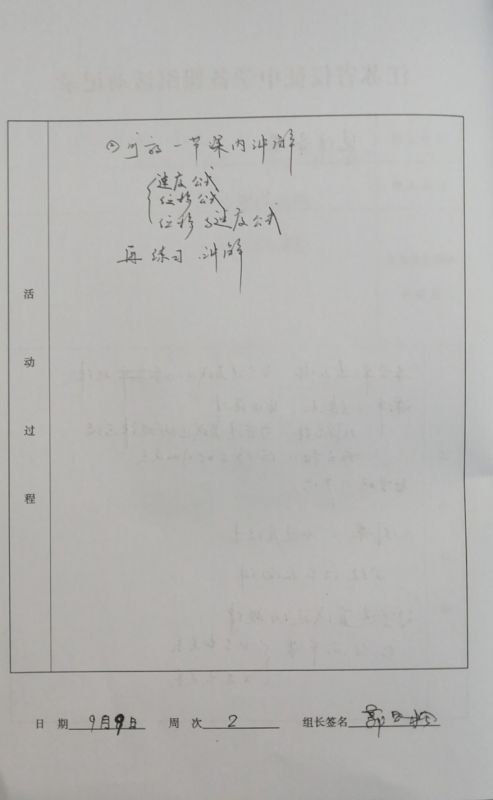 ④可放一节课内讲解
速度公式
位移公式
位移与速度公式
再练习 讲解
活
动
过
程
日 期 9月9日 周 次 2 组长签名